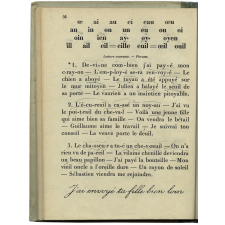 36
ue ai au ci eau œu
an in on un eu ou oi
oin ien ay ey oyen
ill ail eil = eille euil = œil ouil
1. De-vi-ne com-bien j'ai pay-é mon
cray-on — L'em-ploy-é se-ra ren-voy-é — Le
chien a aboyé — Le tuyau a été appuyé sur
le mur mitoyen — Julien a balayé le seuil de
sa porte — Le vaurien a un maintien pitoyable.
2. L'é-cu-reuil a ca-ssé sin noy-au — J'ai vu
le po-teau du che-vreuil — Voilà une jeune fille
qui aime bien sa famille — On vendra le bétail
— Guillaume aime le travail — Je suivrai ton
conseil — La veuve porte le deuil.
3. Le cha-sseur a tu-é un che-vreuil — On n'a
rien vu de pa-reil — La vieille chenille deviendra
un beau papillon — J'ai payé la bouteille — Mon
vieil oncle a l'oreille dure — Un rayon de soleil
— Sébastien viendra me rejoindre.
J'ai envoyé ta fille bien loin